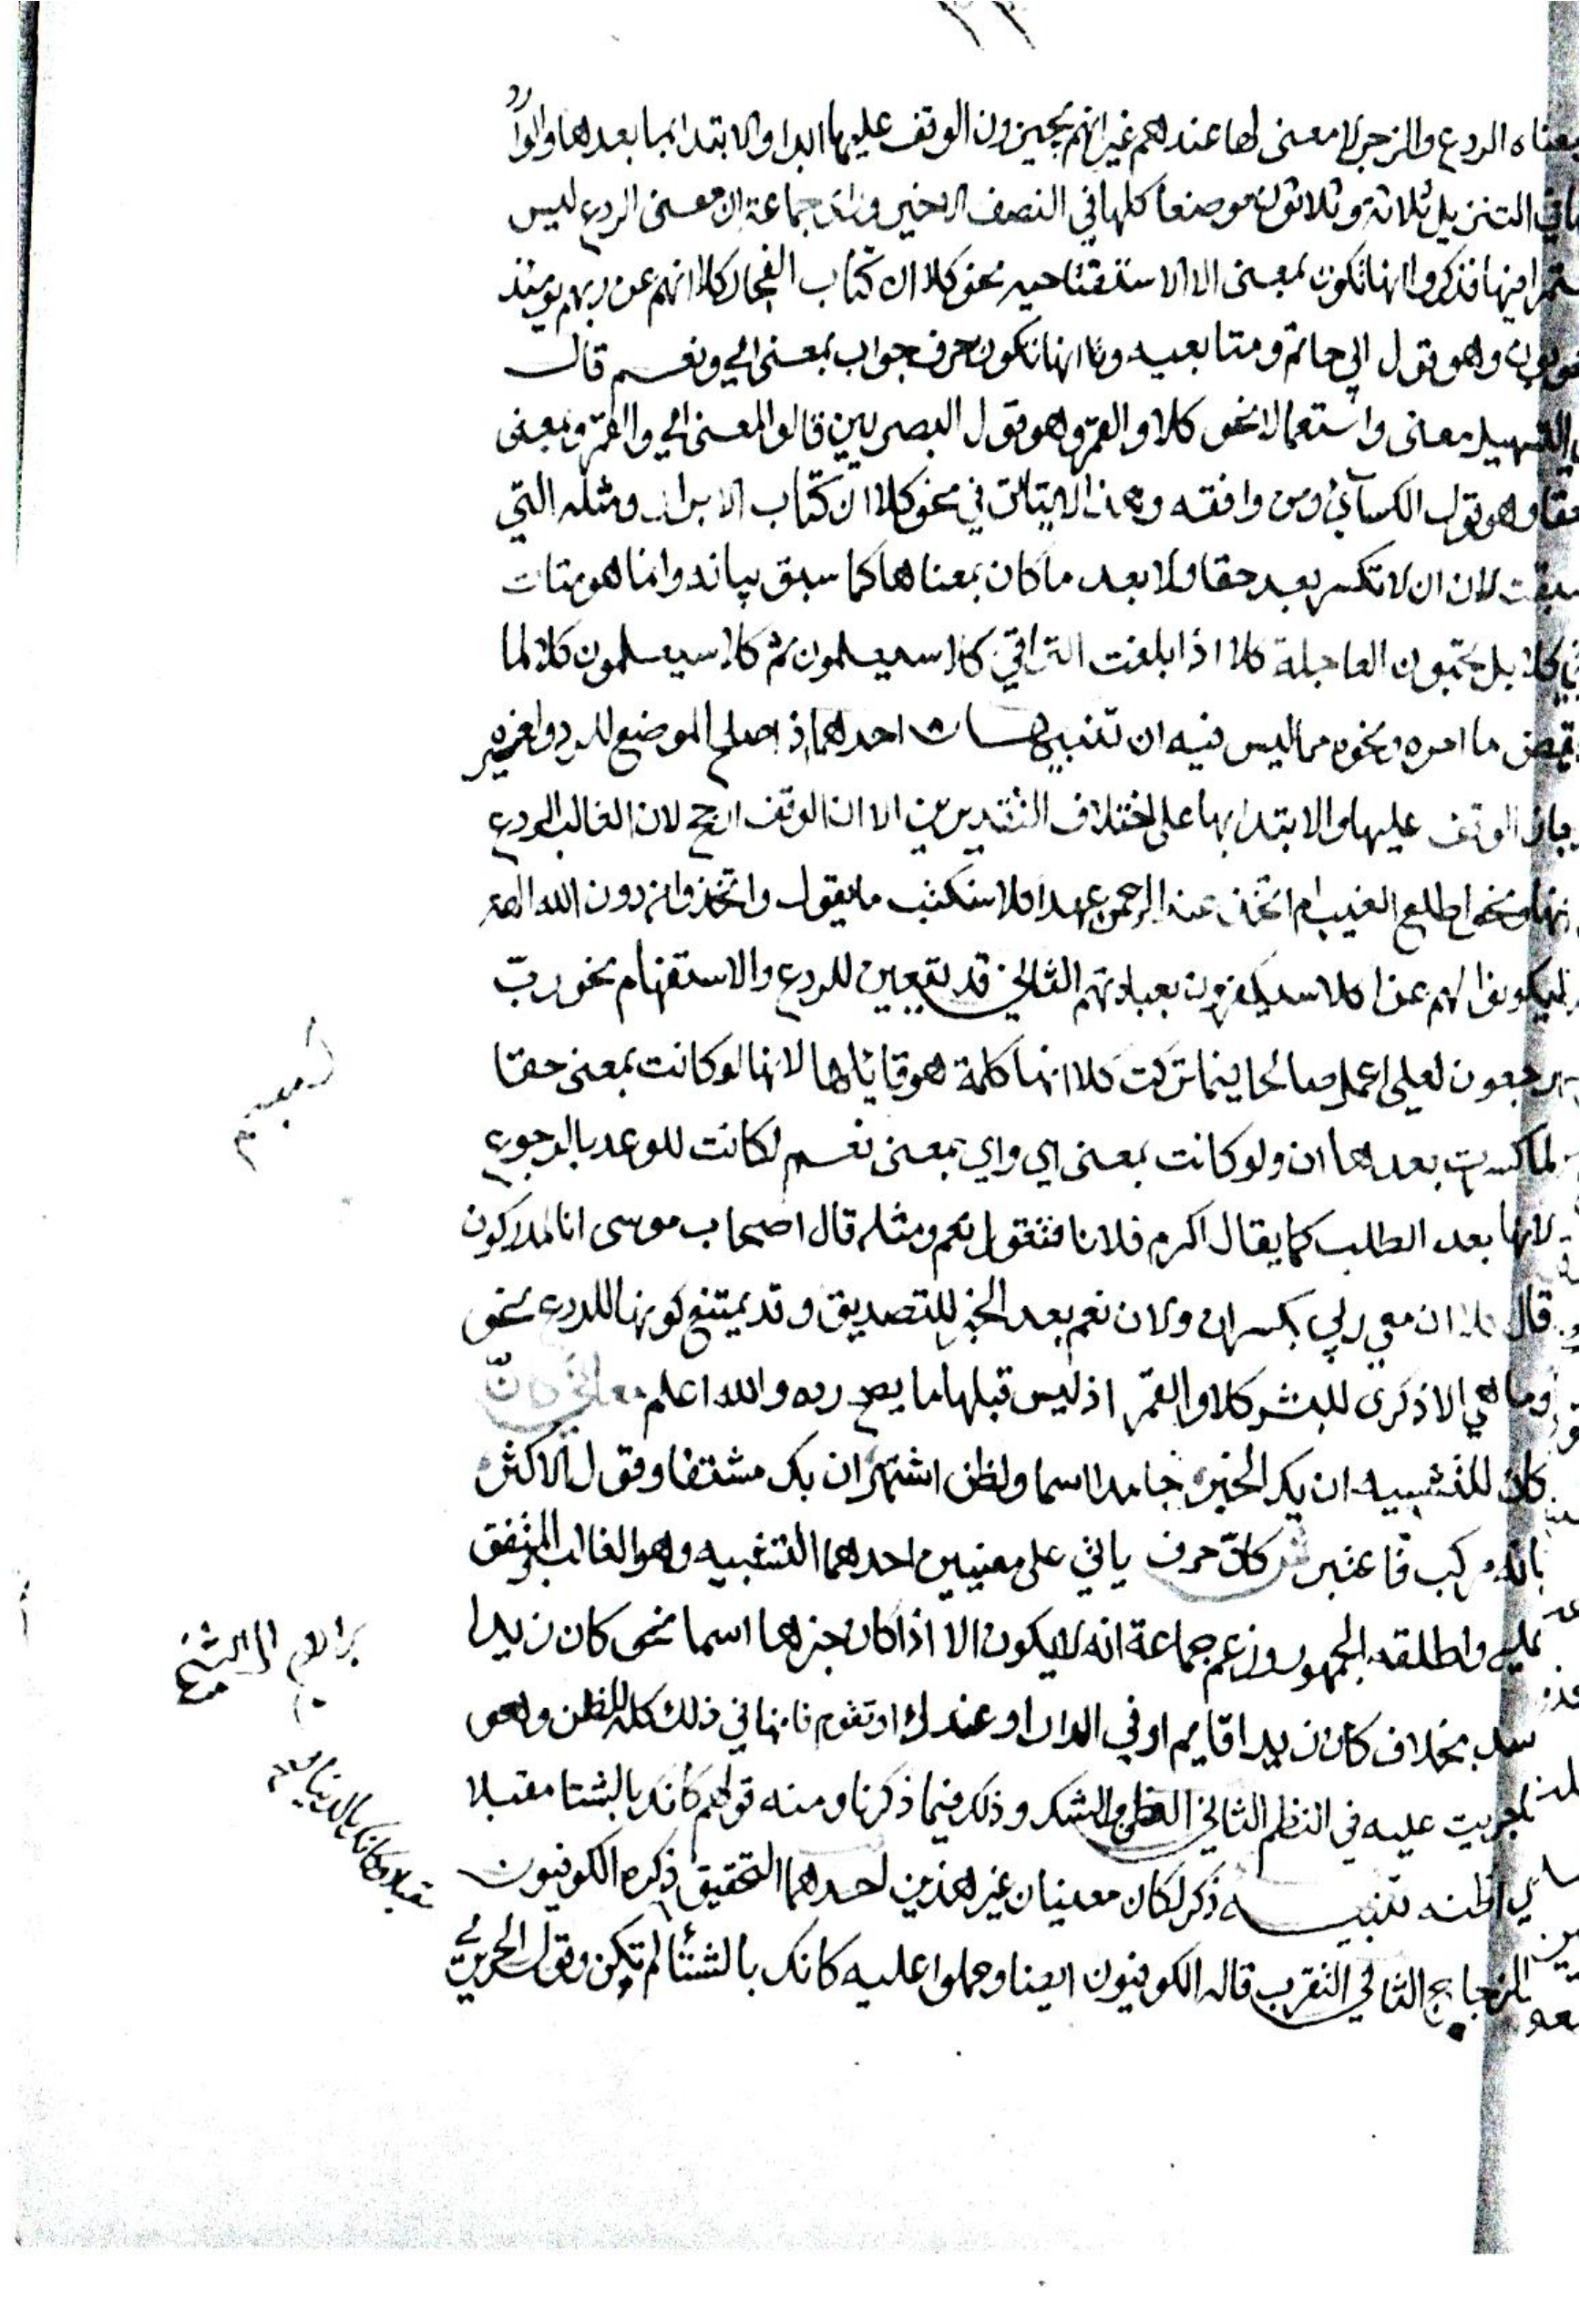 معناه الردع والزجر لا معنى لها عندهم غير انهم يجيزون الوقف عليها ابدا والابتدا بما بعدها والوارد
في التنزيل ثلاثة وثلاثون موضعا كلها في النصف الاخير وراى جماعة ان معنى الردع ليس
مستمرا فيها فذكروا انها تكون بمعنى الا الاستفتاحيه نحو كلا ان كتاب الفجار كلا انهم عن ربهم يومئذ
وهو قول ابي حاتم ومتابعيه وانها تكون حرف جواب بمعنى اي ونعم قال
التسهيل معنى واستعمالا نحو كلا والقمر وهو قول البصريين قالوا المعنى اي والقمر وبمعنى
حقا وهو قول الكسائي ومن وافقه وهذا لا يتاتى في نحو كلا ان كتاب الابرار ومثله التي
سبقت لان ان لا تكسر بعد حقا ولا بعد ما كان بمعناها كما سبق بيانه وانما هو يتات
في كلا بل تحبون العاجلة كلا اذا بلغت التراقي كلا سيعلمون ثم كلا سيعلمون كلا لما
يقض ما امره ونحوه مما ليس فيه ان تنبيهات احدهما اذ اصلح الموضع للردع ولغيره
جاز الوقف عليها والابتدا بها على اختلاف التقديرين الا ان الوقف ارجح لان الغالب الردع
نحو اطلع الغيب ام اتخذ عند الرحمن عهدا كلا سنكتب ما يقول واتخذوا من دون الله الهة
ليكونوا لهم عزا كلا سيكفرون بعبادتهم الثاني قد يتعين للردع والاستفهام نحو رب
ارجعون لعلي اعمل صالحا فيما تركت كلا انها كلمة هو قائلها لانها لو كانت بمعنى حقا
لما كسرت بعدها ان ولو كانت بمعنى اي واي بمعنى نعم لكانت للوعد بالرجوع
لانها بعد الطلب كما يقال اكرم فلانا فتقول نعم ومثله قال اصحاب موسى انا لمدركون
قال كلا ان معي ربي بكسر ان ولان نعم بعد الخبر للتصديق وقد يمتنع كونها للردع نحو
وما هي الا ذكرى للبشر كلا والقمر اذ ليس قبلها ما يصح رده والله اعلم معاني كانّ
كان للتشبيه ان يك الخبر جامدا اسما ولظن اشتهر ان يك مشتقا وقول الاكثر
بانه مركب فاعتبر ش كانّ حرف ياتي على معنيين احدهما التشبيه وهو الغالب المتفق
عليه واطلقه الجمهور وزعم جماعة انه لا يكون الا اذا كان خبرها اسما نحو كان زيدا
اسد بخلاف كان زيدا قايم او في الدار او عندك او تقوم فانها في ذلك كله للظن وهو
ما جريت عليه في النظم الثاني الظن والشك وذلك فيما ذكرنا ومنه قولهم كانك بالشتا مقبلا
اي اظنه تنبيه ذكر لكان معنيان غير هذين احدهما التحقيق ذكره الكوفيون
والزجاج الثاني التقرب قاله الكوفيون ايضا وحملوا عليه كانك بالشتا لم تكن وقول الحريري